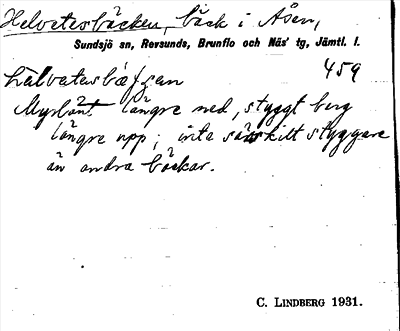 Helvetesbäcken, bäck i Åsen,
Sundsjö sn, Revsunds, Brunflo och Näs' tg, Jämtl. l.
459
hälvatusbäʃsen
Myrlänt längre ned, styggt berg
längre upp; inte särskilt styggare
än andra bäckar.
C. LINDBERG 1931.